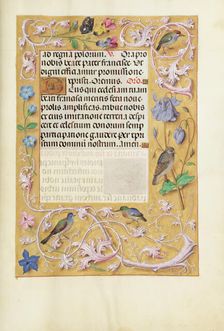 ad regna polorum. V. Ora pro
nobis beate pater francisce. Ut
digni efficiamur promissione
Oremus.
Deus qui ecclesiam tuam
francisci meritis fetu nove
prolis amplificas: tribue nobis
ex eius imitatione terrena despi
cere et celestium donorum semper
participatione gaudere. per
dominum nostrum. amen.